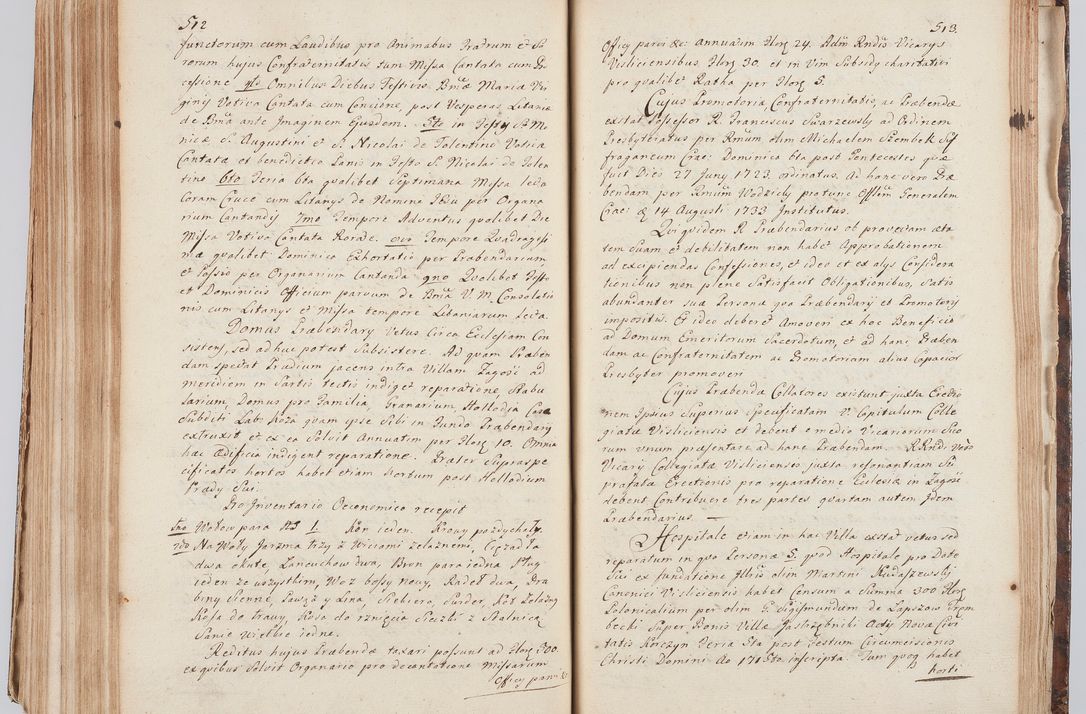 512
functorum cum Laudibus pro Animabus Fratrum et So
rorum hujus Confraternitatis tum Missa Cantata cum Pr
cessione 4to Omnibus Diebus Festivis Bmae Mariae Vir
ginis Votiva Cantata cum Concione, post Vesperas Litaniae
de Bma ante Imaginem Ejusdem. 5to in Festis S. Mo
nicae S. Augustini et S. Nicolai de Tolentino Votiva
Cantata et benedictio Panis in Festo S. Nicolai de Tolen
tino 6to Feria 6ta qvolibet Septimana Missa lecta
Coram Cruce cum Litanys de Nomine Jesu per Organa
rium Cantandis 7mo Tempore Adventus qvolibet Die
Missa Votiva Cantata Rorate. 8vo Tempore Qvadragesi
mae qvolibet Dominico Exhortatio per Praebendarium
et Passio per Organarium Cantanda 9no Qvolibet Festo
et Dominicis Officium parvum de Bma V. M. Consolatio
nis cum Litanys et Missa tempore Litaniarum Lecta.
Domus Praebendarij Vetus Circa Ecclesiam Con
sistens, sed adhuc potest Subsistere. Ad qvam Praeben
dam spectat Praedium jacens intra Villam Zagość ad
meridiem in Partis tectis indiget reparatione, Stabu
larium, Domus pro Familia, Granarium, Hollodia Casa
Subditi Lab: Koza qvam ipse Sibi in Fundo Praebendarij
extruxit et ex ea Solvit Annuatim per Flor 10. Omnia
haec Aedificia indigent reparatione. Praeter Supraspe
cificatos hortos habet etiam Hortum post Hollodium
Praedij Sui.
Pro Inventario Oeconomico recepit
1mo Wołow para No 1. Kon ieden. Krowy pozdychały.
2do Na Woły Jarzma trzy z Wiciami żelaznemi, Cięzadła
dwa okute, Lancuchow dwa, Bron para iedna Plug
ieden ze wszystkim, Woz bossy Nowy, Radeł dwa, Dra
biny Sienne, Pawąz y Lina, Siekiera, Swider, Koł żelazny
Kosa do trawy, Kosa do rznięcia Sieczki z Stalnicą
Sanie Wielkie iedne.
Reditus hujus Praebendae taxari possunt ad Flor 300.
ex qvibus Solvit Organario pro decantatione Missarum
Officij parvi &
513.
Officij parvi &c: annuatim Flor 24. Adm Rndis Vicarys
Visliciensibus Flor 30. et in Vim Subsidij charitativi
pro qvalibet Ratha per Flor 5.
Cujus Promotoriae Confraternitatis, ac Praebendae
exstat Possessor R. Franciscus Swarzewski ad Ordinem
Presbyteratus per Rmum olim Michaelem Szembek Suf
fraganeum Crac: Dominica 6ta post Pentecostes qvae
fuit Dies 27 Juny 1723 ordinatus. Ad hanc vero Prae
bendam per Rmum Wodzicki protunc Offlem Generalem
Crac: D 14 Augusti 1733 Institutus.
Qui qvidem R. Praebendarius ob provectam aeta
tem Suam et debilitatem non habet Approbationem
ad excipiendas Confessiones, et ideo et ex alys Considera
tionibus non plene Satisfacit Obligationibus, satis
abundanter suae Personae qva Praebendarij et Promotorij
impositis. Et ideo deberet Amoveri ex hoc Beneficio
ad Domum Emeritorum Sacerdotum, et ad hanc Praeben
dam ac Confraternitatem ac Promotoriam alius Capacior
Presbyter promoveri
Cujus Praebenda Collatores existunt juxta Erectio
nem Ipsius Superius Specificatam V. Capitulum Colle
giatae Visliciensis et debent e medio Vicariorum Suo
rum unum praesentare ad hanc Praebendam. RRndi vero
Vicary Collegiatae Vislicienses juxta resonantiam Su
prafatae Erectionis pro reparatione Ecclesiae in Zagość
debent Contribuere tres partes qvartam autem Idem
Praebendarius.
Hospitale etiam in hac Villa exstat vetus sed
reparatum in qvo Personae 5. qvod Hospitale pro Dote
Sua ex fundatione Illris olim Martini Kudaszewski
Canonici Visliciensis habet Censum a Summa 300 Flor
Polonicalium per olim G. Sigismundum de Lapszow Trem
becki Super Bonis Villae Jastrzębniki Actis Novae Civi
tatis Korczyn Feria 5ta post Festum Circumcisionis
Christi Domini Ao 1715to inscripta. Tum qvoq habet
horti